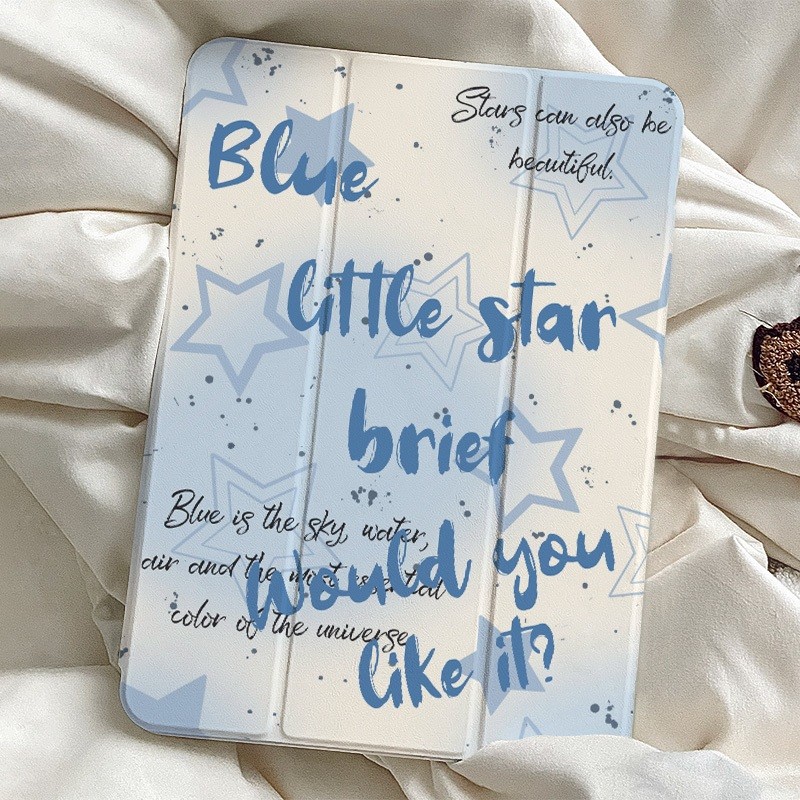 Stars can also be
beautiful.
Blue
little star
brief
Would you
like it?
Blue is the sky, water,
air and the most essential
color of the universe